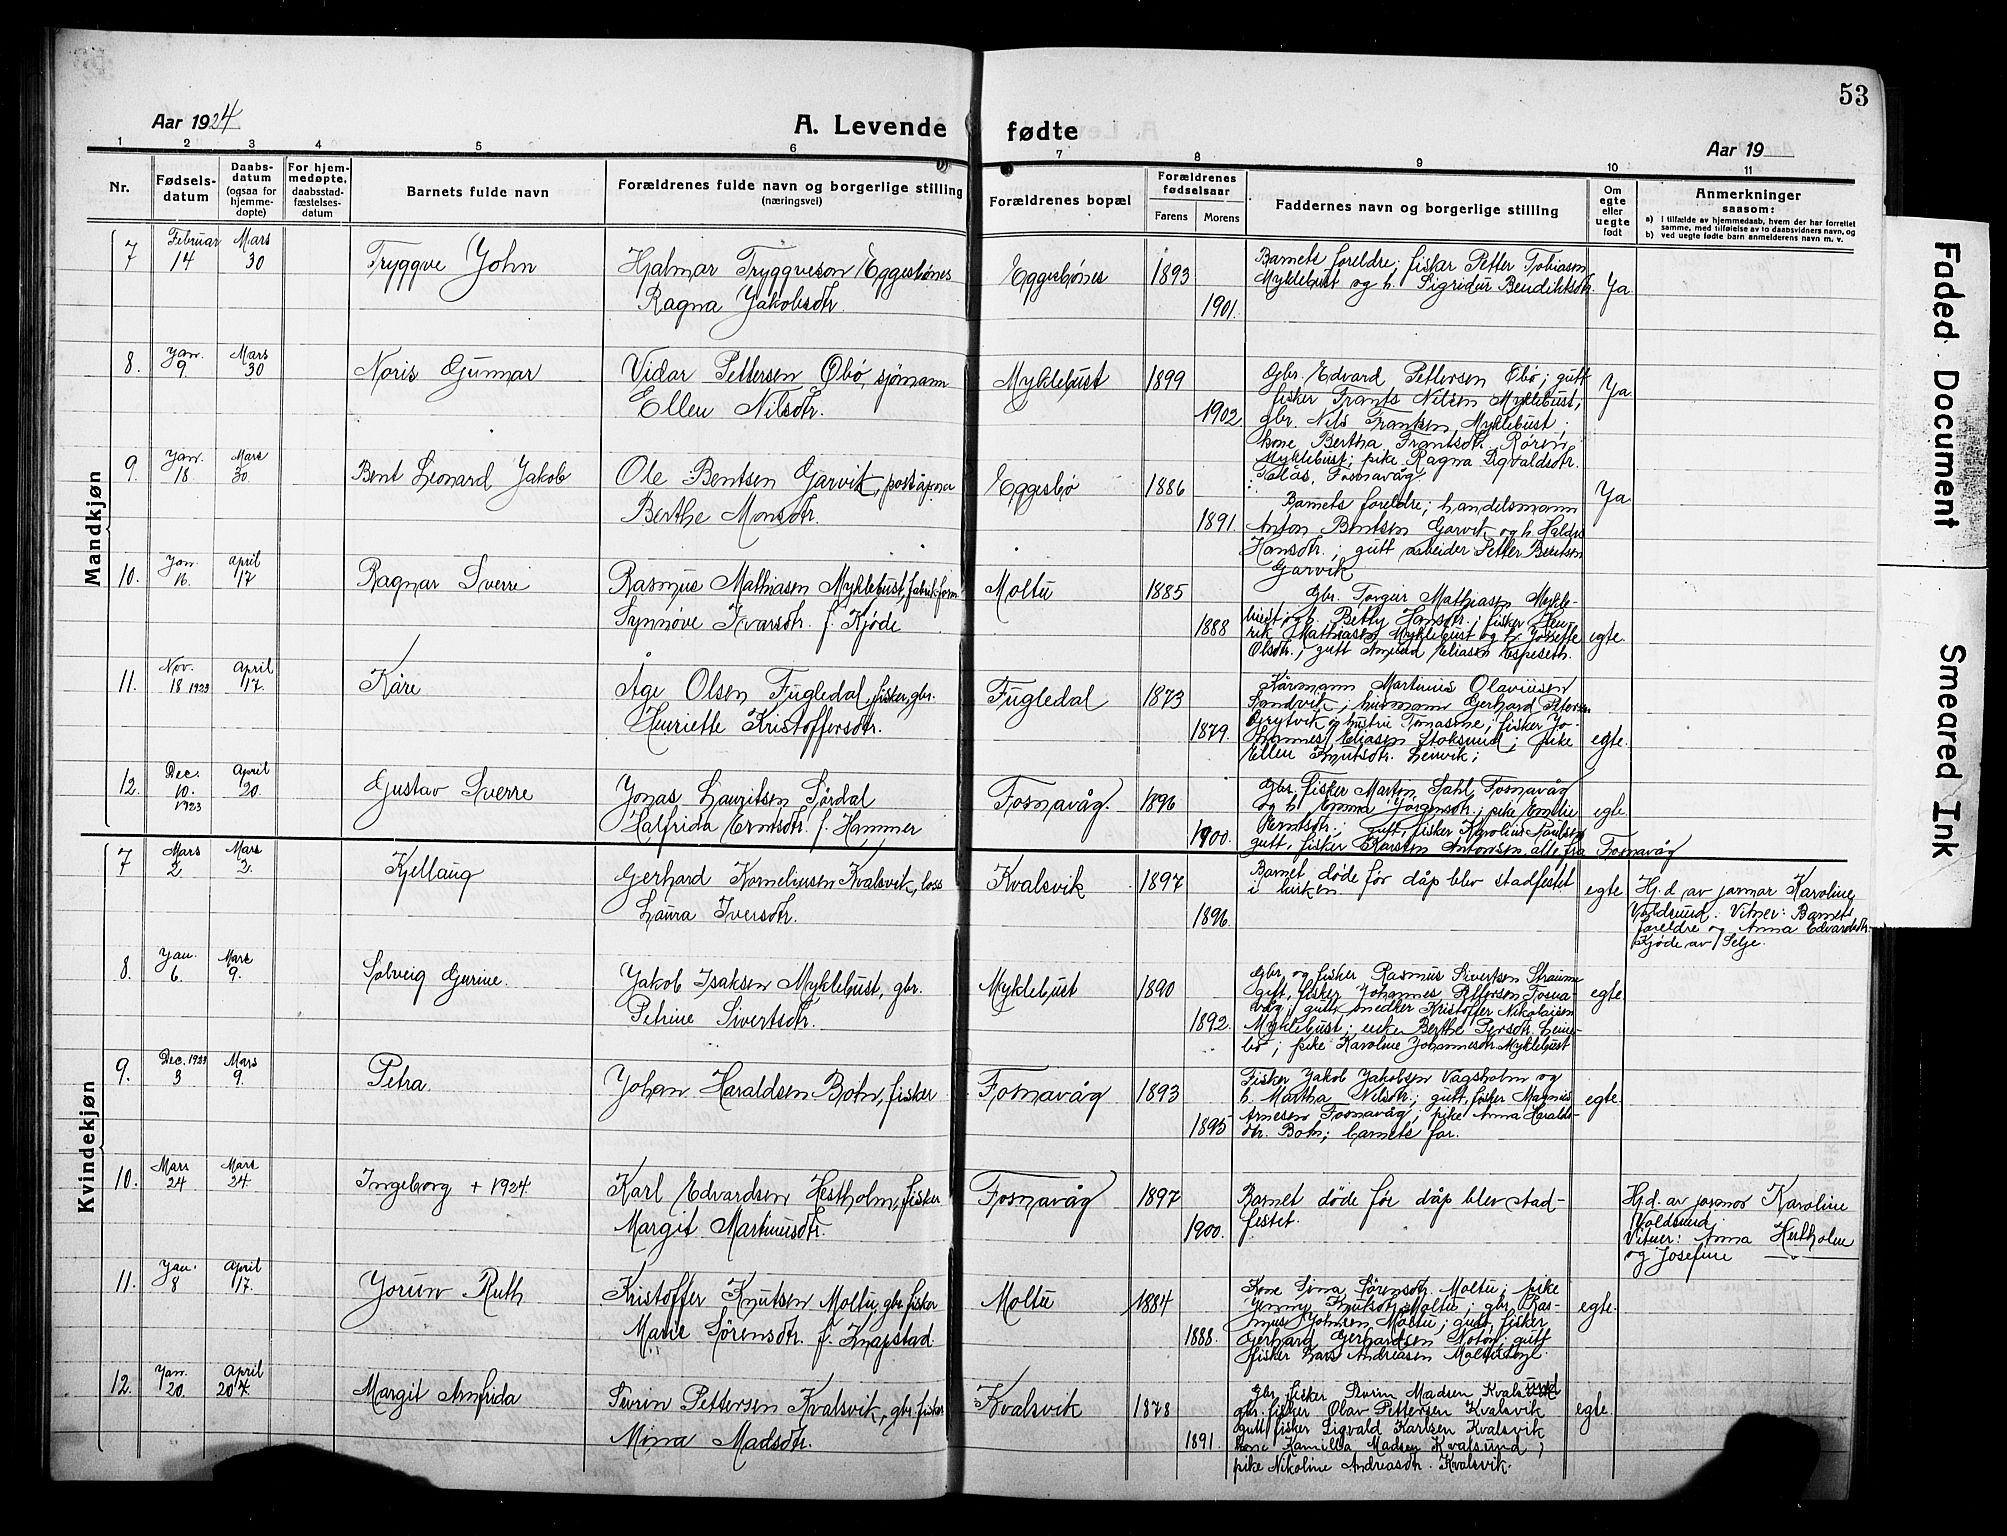 53
Aar 1924
A. Levende fødte
Aar 19
1 2 3 4 5 6 7 8 9 10 11
Nr.
Fødsels-
datum
Daabs-
datum
(ogsaa for
hjemme-
døpte)
For hjem-
medøpte,
daabsstad-
fæstelses-
datum
Barnets fulde navn
Forældrenes fulde navn og borgerlige stilling
(næringsvei)
Forældrenes bopæl
Forældrenes
fødselsaar
Farens Morens
Faddernes navn og borgerlige stilling
Om
egte
eller
uegte
født
Anmerkninger
saasom:
a) I tilfælde av hjemmedaab, hvem der har forrettet
samme, med tilføielse av to daabsvidners navn, og
b) ved uegte fødte barn anmelderens navn m. v.
Mandkjøn
7
Februar
14
Mars
30
Tryggve John
Hjalmar Tryggveson Eggesbönes
Ragna Jakobsdtr.
Eggesbönes
1893
1901.
Barnets foreldre; fisker Petter Tobiasen
Myklebust og h. Sigridur Bendiktsdtr.
Ja
8.
Jan.
9.
Mars
30
Noris Gunnar
Vidar Pettersen Öbö, sjömann
Ellen Nilsdtr.
Myklebust
1899
1902.
Gbr. Edvard Pettersen Öbö; gutt
fisker Frants Nilsen Myklebust,
gbr. Nils Frantsen, Myklebust;
kone Bertha Frantsdtr. Rören,
Myklebust; pike Ragna Sigvaldsdtr.
Fosnavåg
Ja
9.
Jan.
18
Mars
30.
Bent Leonard Jakob
Ole Bentsen Garvik, poståpner
Berthe Monsdtr.
Eggesbö
1886
1891.
Barnets foreldre; handelsmann
Anton Bentsen Garvik og h.
Hansdtr.; gutt arbeider Petter Bentsen
Garvik
Ja
10.
Jan.
16.
April
17
Ragnar Sverre
Rasmus Mathiasen Myklebust, fabrikform.
Synnöve Ivarsdtr. f. Kjöde
Moltu
1885
1888
Gbr. Torgeir Mathiasen Mykle-
bust og h. Betty Hansdtr.; fisker Hen-
rik Mathiasen Myklebust og h. Josefie
Olsdtr.; gutt Amund Eliasen Espeseth.
egte.
11.
Nov.
18 1923
April
17.
Kåre
Åge Olsen Fugledal, fisker, gbr.
Henriette Kristoffersdtr.
Fugledal
1873
1879.
Kårmann Martinus Olaviusen
Sandvik; husmann Gerhard Petersen
Grytvik og hustru Tomasine; fisker Jo-
hannes Eliasen Stoksund; pike
Ellen Knutsdtr. Leinvik;
egte.
12.
Dec.
10.
1923
April
20.
Gustav Sverre
Jonas Lauritsen Sördal
Halfrida Erntsdtr. f. Hammer
Fosnavåg.
1896
1900.
Gbr. fisker Marton Dahl Fosnavåg
og h. Emma Jörgensdtr.; pike Emilie
Berntsdtr.; gutt, fisker Karolius Paulsen
gutt, fisker Karsten Antonsen, alle fra Fosnavåg
egte.
Kvindekjøn
7
Mars
2
Mars
2.
Kjellaug
Gerhard Korneliusen Kvalsvik, loss
Laura Iversdtr.
Kvalsvik
1897
1896.
Barnet döde för dåp blev stadfestet
i kirken
egte
Hj.d. av jormor Karoline
Voldsund. Vitner: Barnets
foreldre og Anna Edvardsdtr.
Kjöde av Selje.
8.
Jan.
6
Mars
9.
Solveig Gurine.
Jakob Isaksen Myklebust, gbr.
Petrine Sivertsdtr.
Myklebust
1890
1892.
Gbr. og fisker Rasmus Sivertsen Straume
gift, fisker Johannes Pettersen Fosna-
våg; gutt, snedker Kristoffer Nikolaisen
Myklebust; enke Berthe Persdtr. Leine-
bö; pike Karoline Johannesdtr. Myklebust
egte.
9.
Dec. 1923
3
Mars
9.
Petra.
Johan Haraldsen Botn, fisker
Fosnavåg
1893
1895
Fisker Jakob Jakobsen Vågsholm og
h. Martha Nilsdtr.; gutt, fisker Magnus
Arnesen Fosnavåg; pike Anna Haralds-
dtr. Botn; barnets far.
egte.
10.
Mars
24
Mars
24.
Ingeborg + 1924.
Karl Edvardsen Hestholm, fisker
Margit Martinusdtr.
Fosnavåg
1897
1900.
Barnet döde för dåp blev stad-
festet.
Hj.d. av jormor Karoline
Voldsund.
Vitner: Anna Hestholm
og Josefine —„—
11.
Jan.
8
April
17.
Jorunn Ruth
Kristoffer Knutsen Moltu, gbr. fisker
Marie Sörensdtr. f. Knapstad.
Moltu
1884
1888.
Kone Sina Sörensdtr. Moltu; pike
Jenny Knutsdtr. Moltu; gbr. Ras-
mus Johnsen Moltu; gutt, fisker
Gerhard Gerhardsen Notöy; gutt
fisker Lars Andreasen
egte.
12.
Jan.
20.
April
20
Margit Arnfrida
Severin Pettersen Kvalsvik, gbr. fisker
Mina Madsdtr.
Kvalsvik
1878
1891.
Gbr. fisker Severin Madsen Kvalsund
gbr. fisker Olav Pettersen Kvalsvik
gutt fisker Sigvald Karlsen Kvalsvik
kone Kamilla Madsen Kvalsund,
pike Nikoline Andreasdtr. Kvalsvik.
egte.
Faded Document
Smeared Ink